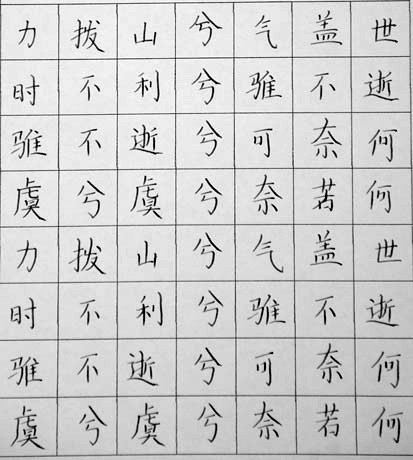 力拨山兮气盖世
时不利兮骓不逝
骓不逝兮可奈何
虞兮虞兮奈若何
力拨山兮气盖世
时不利兮骓不逝
骓不逝兮可奈何
虞兮虞兮奈若何